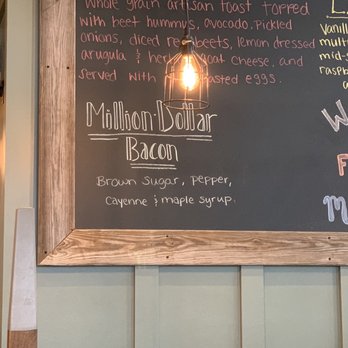 Whole grain artisan toast topped
with beet hummus, avocado, pickled
onions, diced red beets, lemon dressed
arugula & herb goat cheese, and
served with eggs.
Million Dollar
Bacon
Brown Sugar, pepper,
Cayenne & maple syrup.
Vanill
mult
mid-s
raspb
a
W
F
W
M